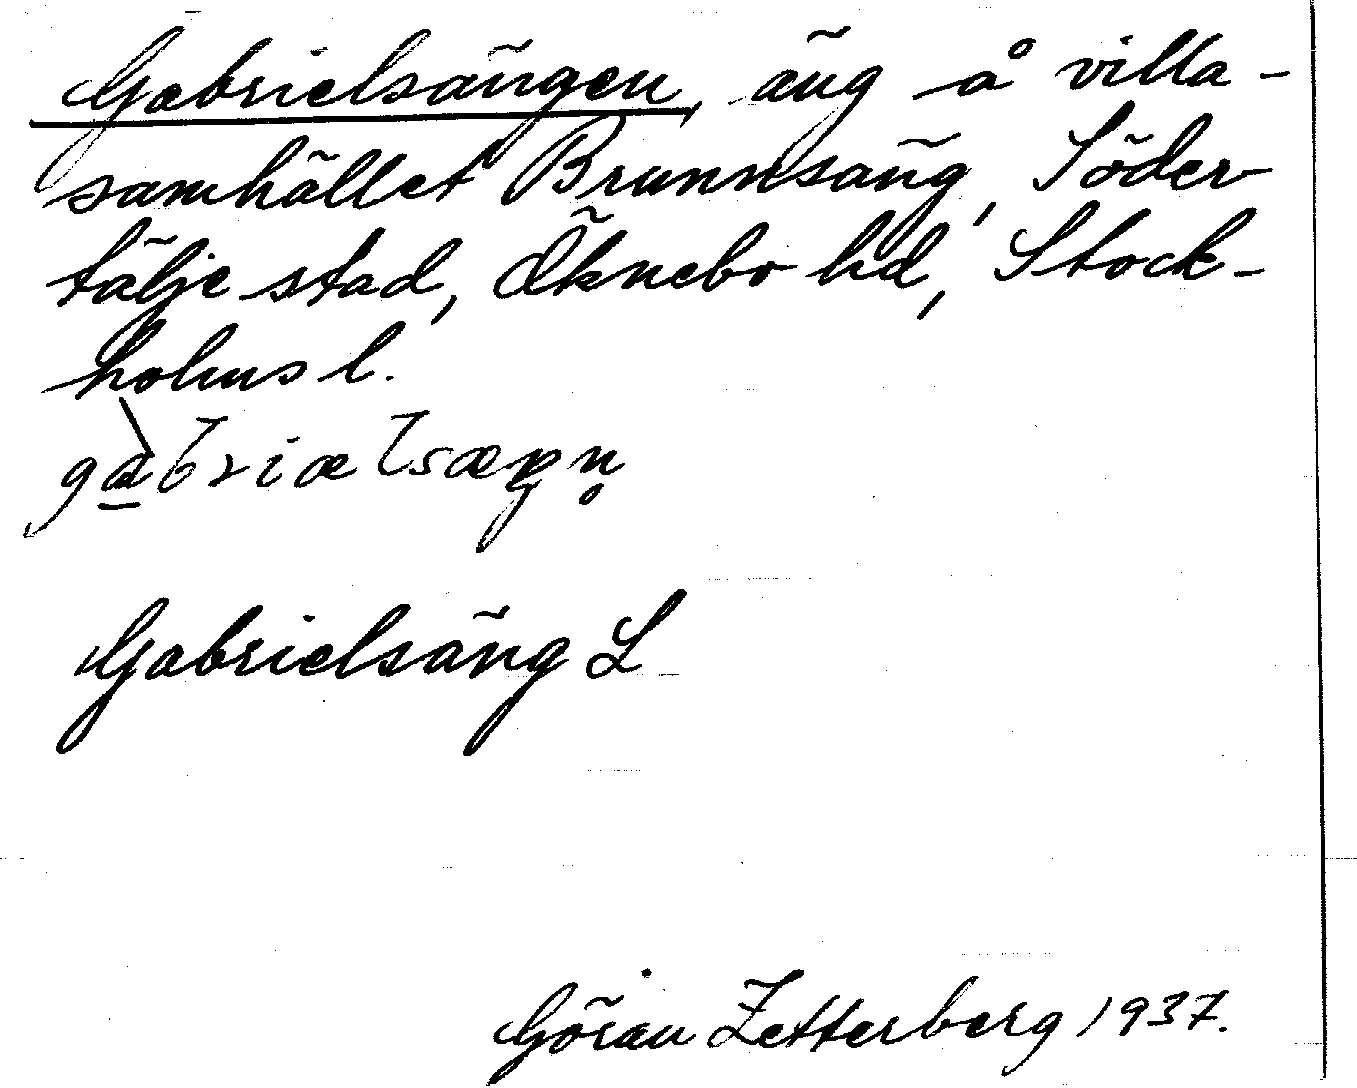 Gabrielsängen, äng å villa-
samhället Brunnsäng, Söder-
tälje stad, Öknebo hd, Stock-
holms l.
gàbriælsæŋn̥
Gabrielsäng L
Göran Zetterberg 1937.